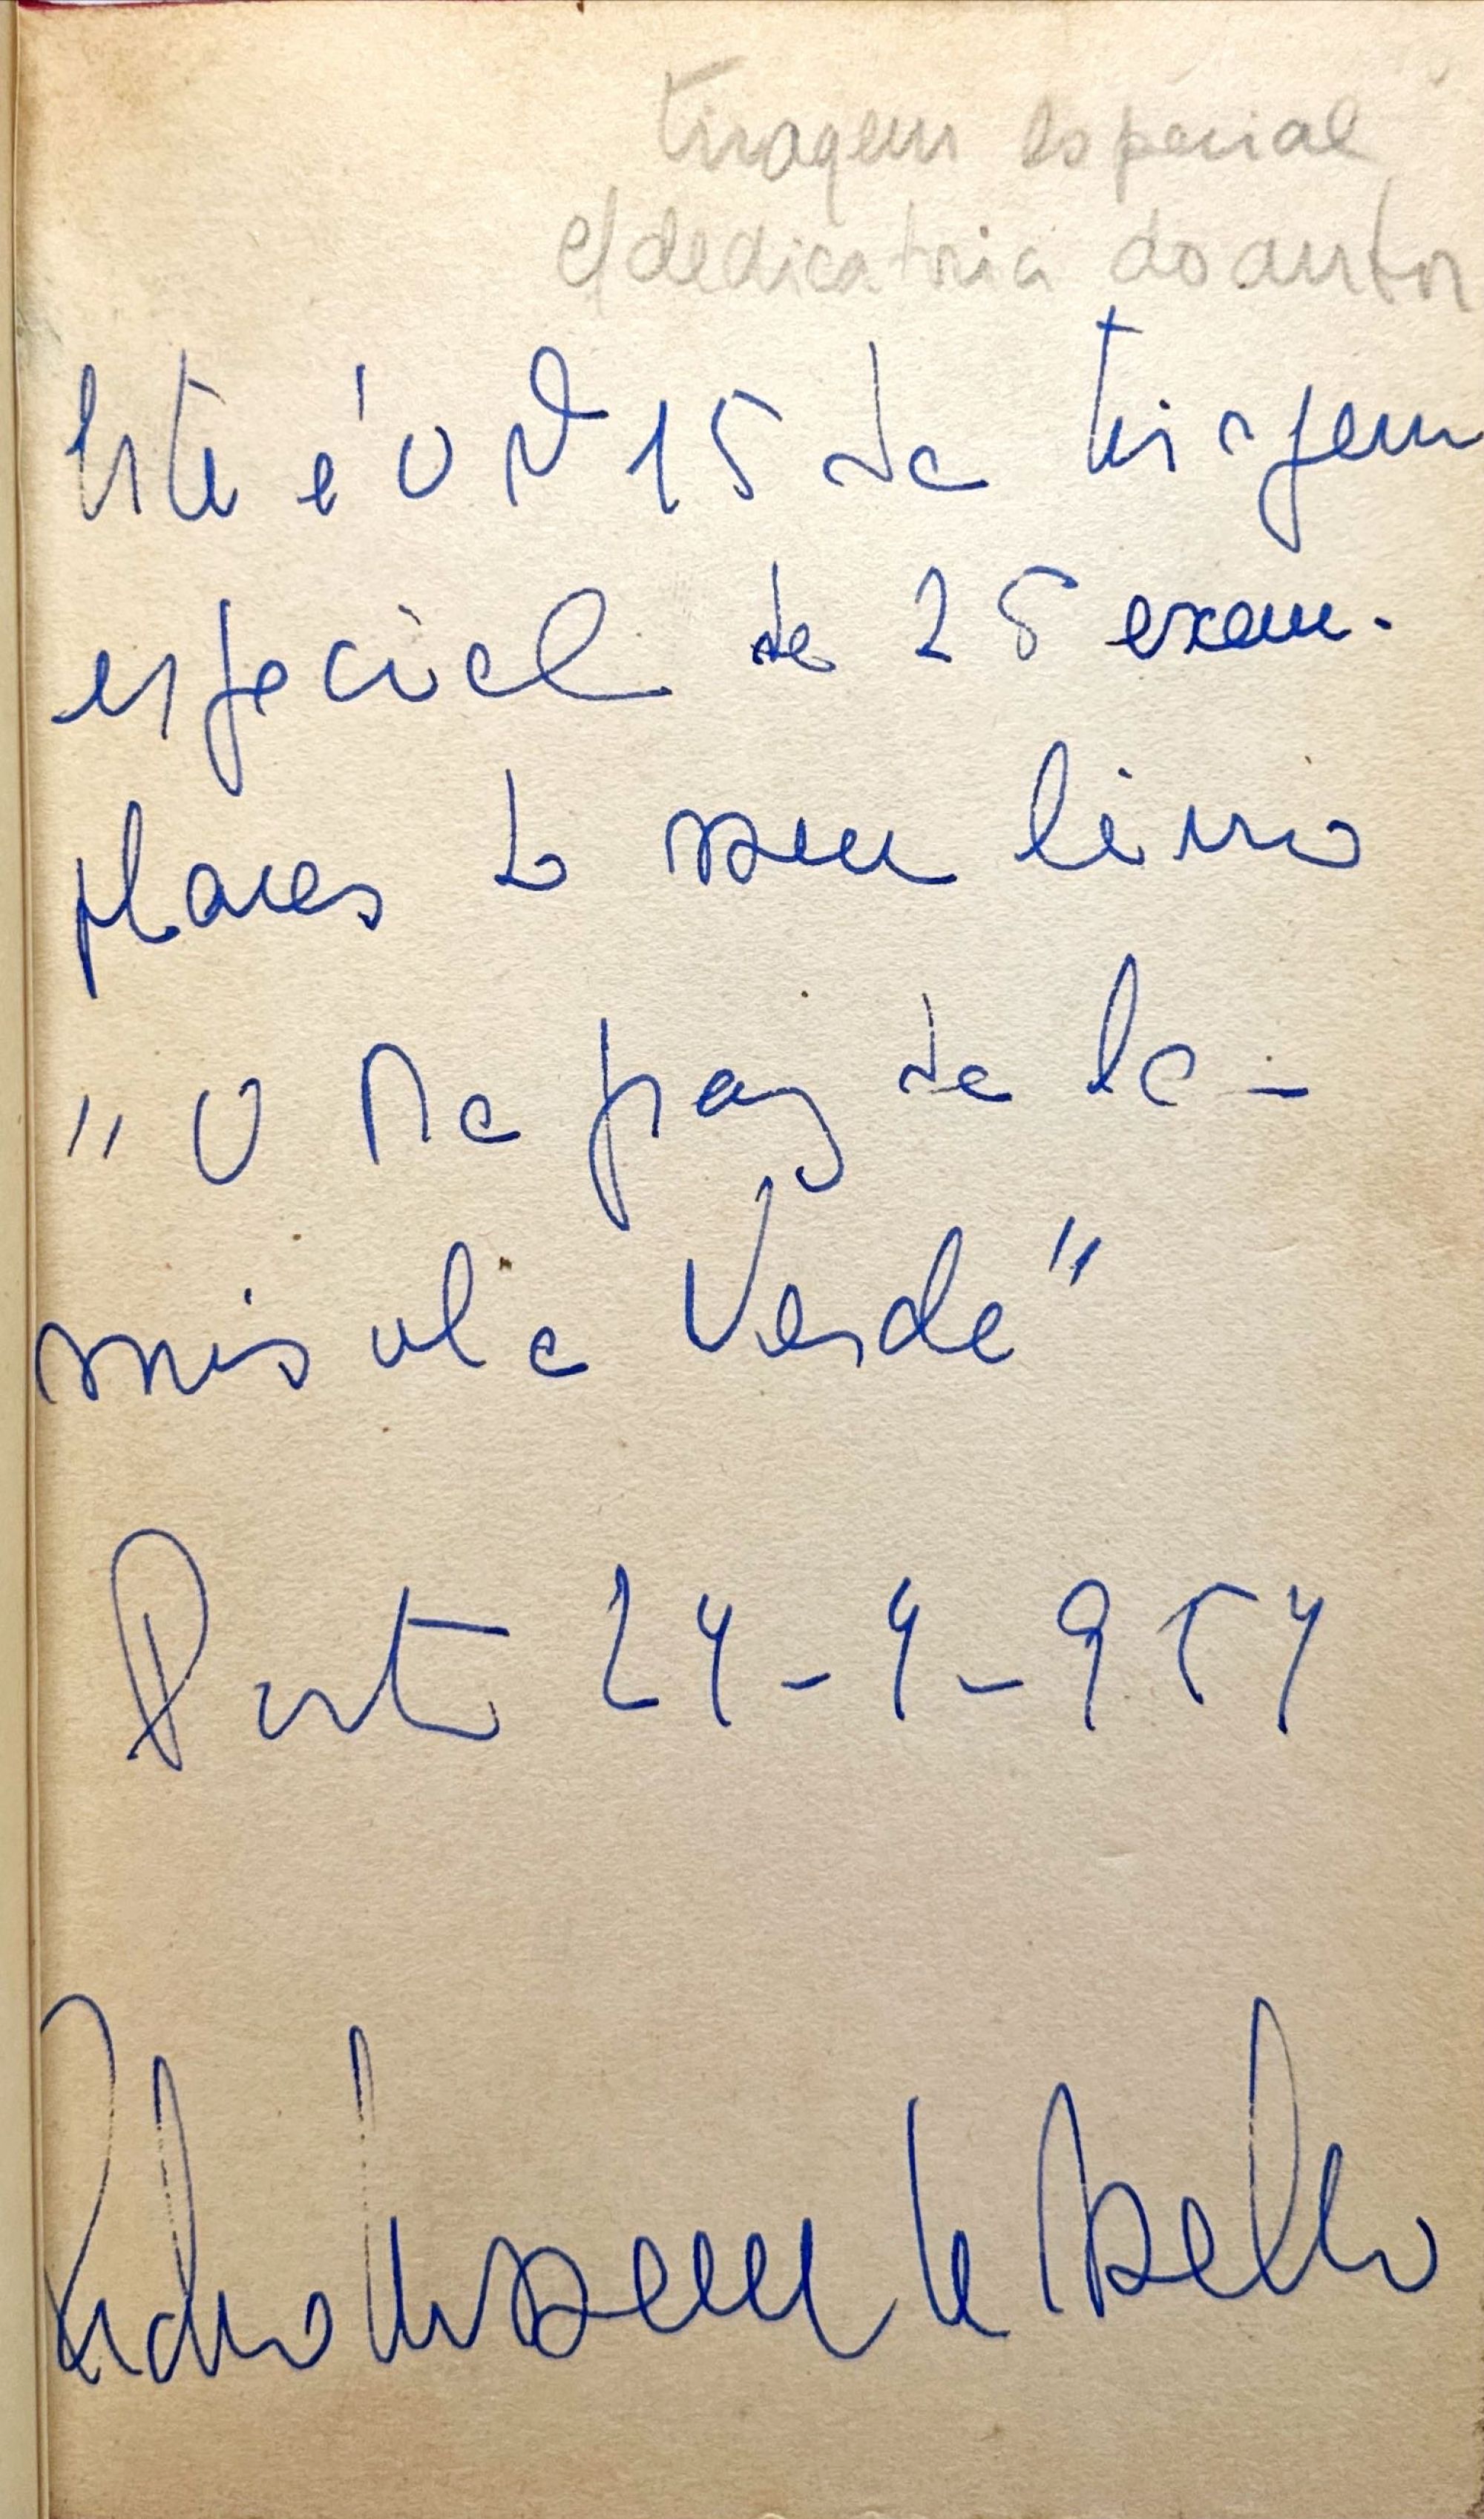 tiragem especial
c/ dedicatoria do autor
Este é o nº 15 da tiragem
especial de 25 exem-
plares do meu livro
"O Rapaz da Ca-
misola Verde"
Porto 24-4-954
Pedro Homem de Mello